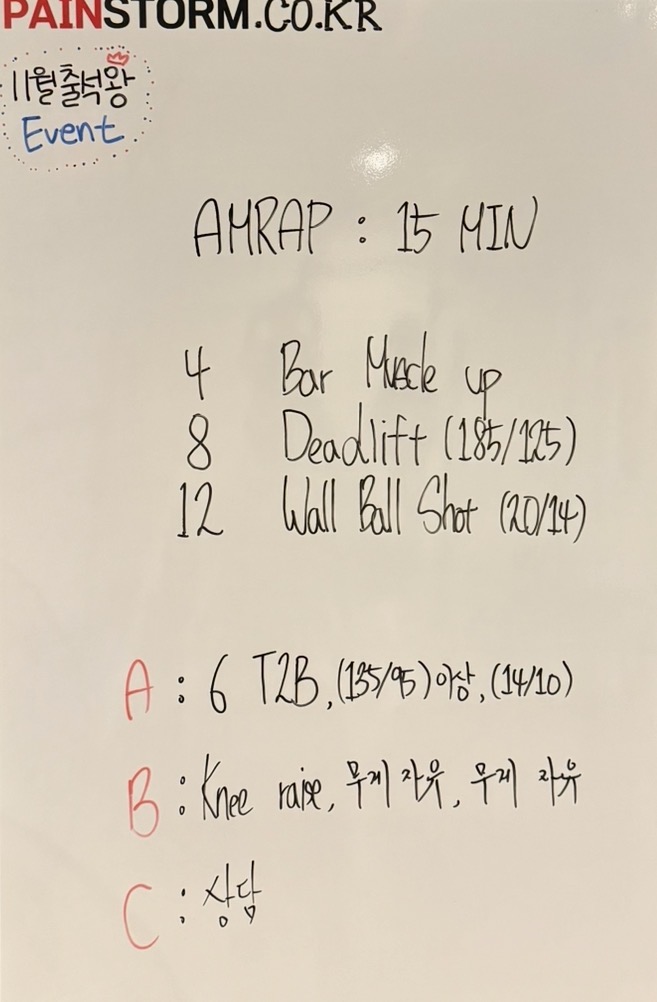 PAINSTORM.CO.KR
11월출석왕
Event
AMRAP : 15 MIN
4 Bar Muscle up
8 Deadlift (185/125)
12 Wall Ball Shot (20/14)
A : 6 T2B, (135/95)이상, (14/10)
B : Knee raise, 무게 자유, 무게 자유
C : 상담